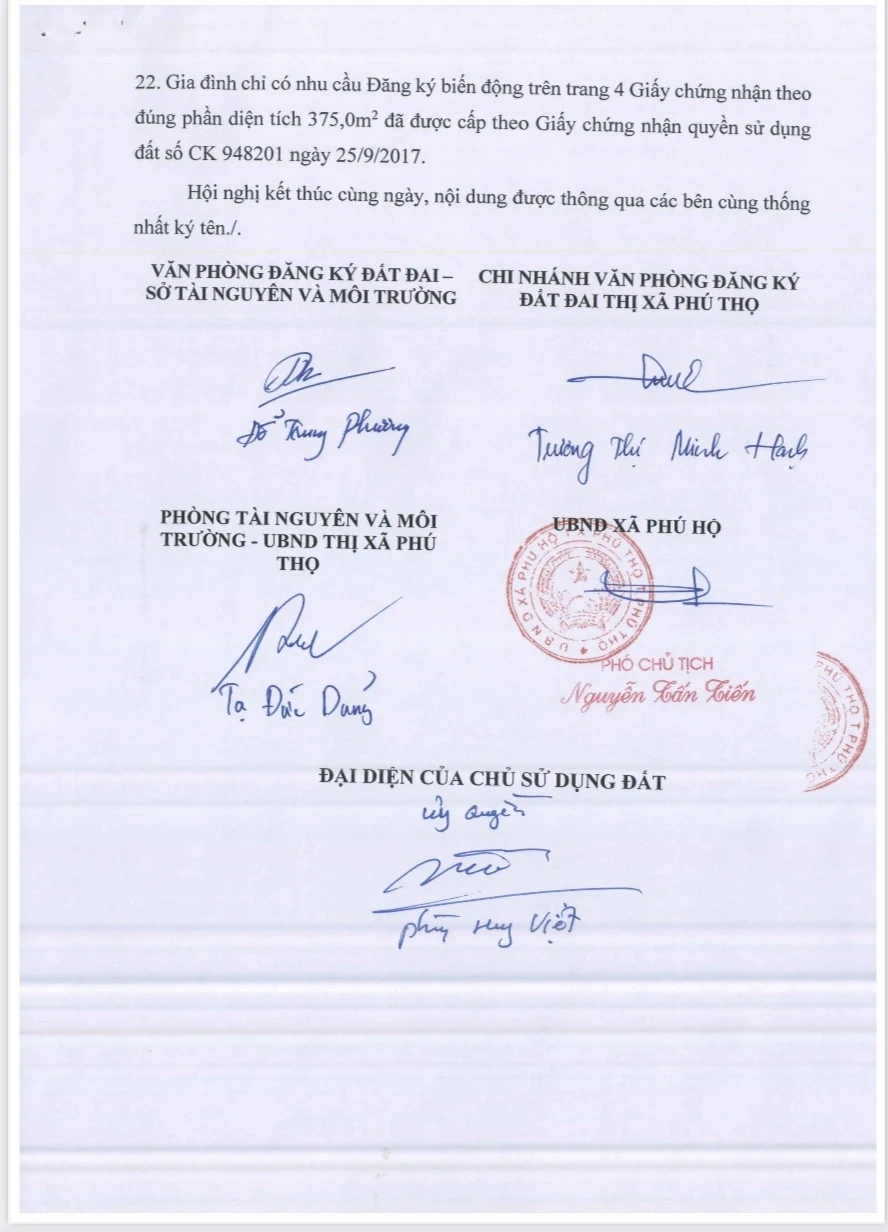 22. Gia đình chỉ có nhu cầu Đăng ký biến động trên trang 4 Giấy chứng nhận theo
đúng phần diện tích 375,0m² đã được cấp theo Giấy chứng nhận quyền sử dụng
đất số CK 948201 ngày 25/9/2017.
Hội nghị kết thúc cùng ngày, nội dung được thông qua các bên cùng thống
nhất ký tên./.
VĂN PHÒNG ĐĂNG KÝ ĐẤT ĐAI –
SỞ TÀI NGUYÊN VÀ MÔI TRƯỜNG
CHI NHÁNH VĂN PHÒNG ĐĂNG KÝ
ĐẤT ĐAI THỊ XÃ PHÚ THỌ
Đỗ Trung Phương
Trương Thị Minh Hạnh
PHÒNG TÀI NGUYÊN VÀ MÔI
TRƯỜNG - UBND THỊ XÃ PHÚ
THỌ
Tạ Đức Dũng
UBND XÃ PHÚ HỘ
UBND XÃ PHÚ HỘ T.X PHÚ THỌ T PHÚ THỌ
PHÓ CHỦ TỊCH
Nguyễn Tấn Tiến
PHÚ THỌ T PHÚ THỌ
ĐẠI DIỆN CỦA CHỦ SỬ DỤNG ĐẤT
Uỷ quyền
Huy Việt